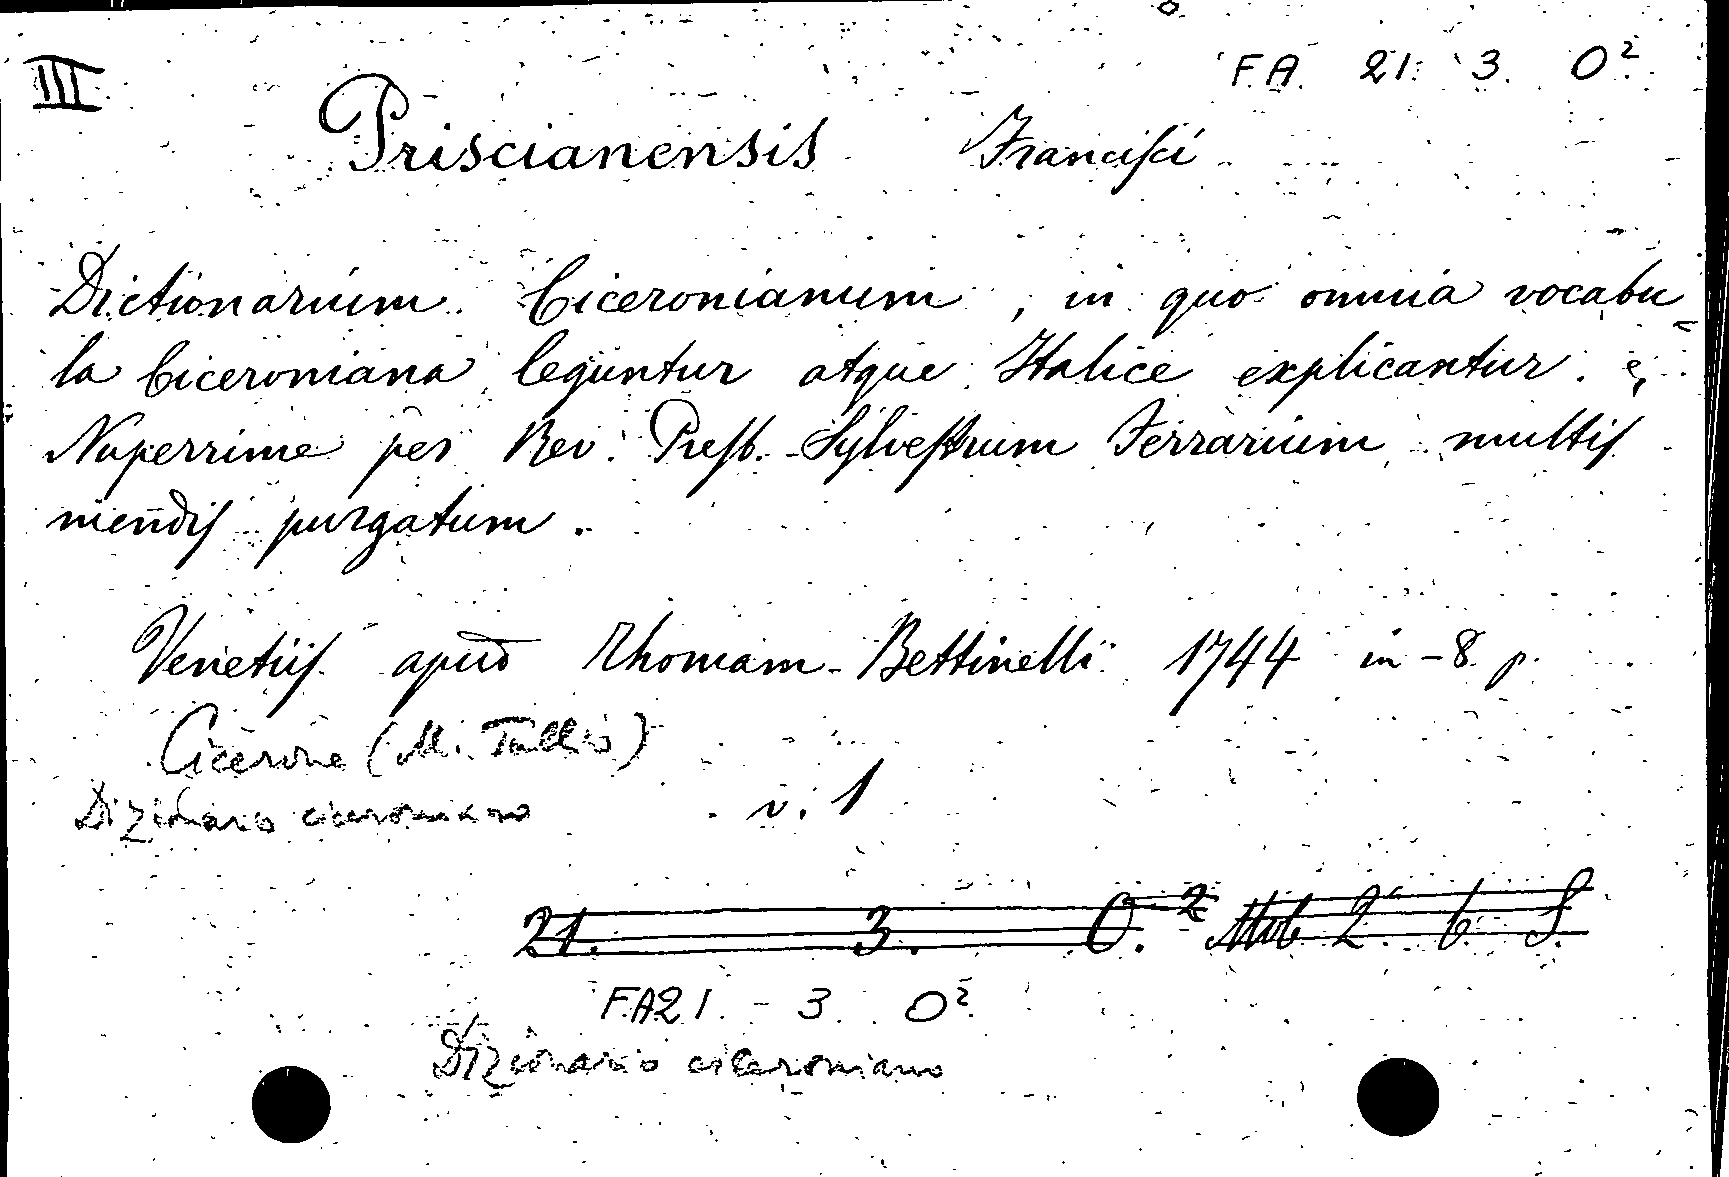 III
F.A. 21. 3. O²
Priscianensis Francisci
Dictionarium Ciceronianum, in quo omnia vocabu=
la Ciceroniana leguntur atque Italice explicantur. e,
Nuperrime per Rev. Presb. Sylvestrum Ferrarium multis
mendis purgatum.
Venetiis apud Thomam Bettinelli 1744 in-8 p.
Cicerone (M. Tullio)
Dizionario ciceroniano v. 1
21. 3. O.² Mob 2. 6. S.
F.A 21. - 3. O²
Dizionario ciceroniano